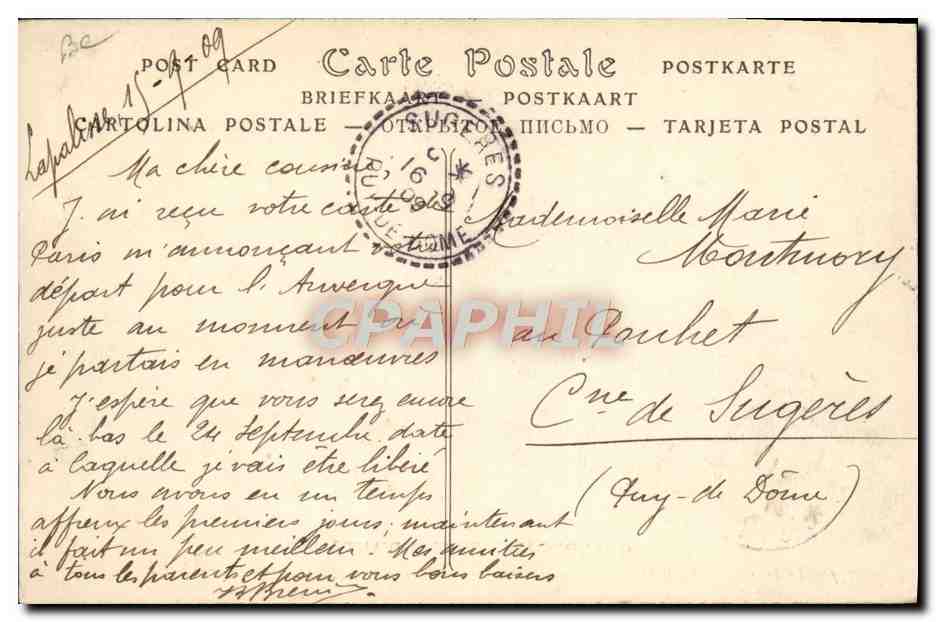 BC
POST CARD Carte Postale POSTKARTE
BRIEFKAART POSTKAART
CARTOLINA POSTALE — ОТКРЫТОЕ ПИСЬМО — TARJETA POSTAL
Lapalisse, 15-9-09
SUGÈRES
16
9
09
PUY-DE-DÔME
Ma chère cousine,
J'ai reçu votre carte de
Paris m'annonçant votre
départ pour l'Auvergne
juste au moment où
je partais en manœuvres
J'espère que vous serez encore
là-bas le 24 septembre, date
à laquelle je vais être libéré
Nous avons eu un temps
affreux les premiers jours, maintenant
il fait un peu meilleur. Mes amitiés
à tous les parents et pour vous bons baisers
Mademoiselle Marie
Montmory
au Pouhet
Cne de Sugères
(Puy-de Dôme)
CPAPHIL